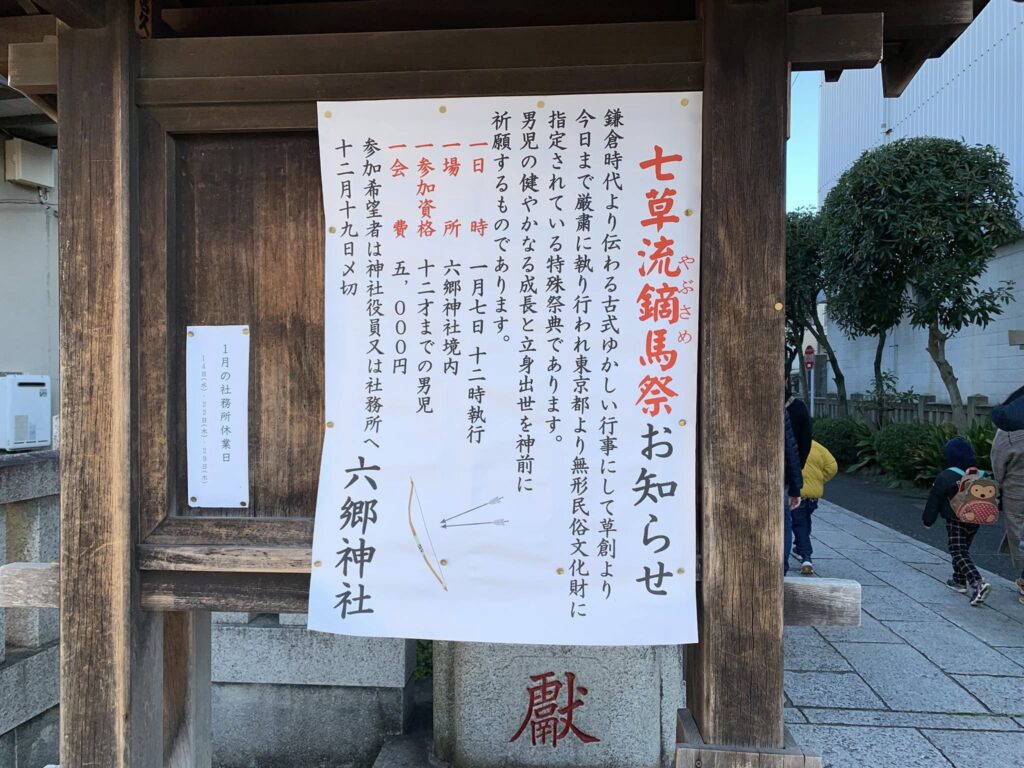 七草流鏑馬祭お知らせ
やぶさめ
鎌倉時代より伝わる古式ゆかしい行事にして草創より
今日まで厳粛に執り行われ東京都より無形民俗文化財に
指定されている特殊祭典であります。
男児の健やかなる成長と立身出世を神前に
祈願するものであります。
一日時 一月七日 十二時執行
一場所 六郷神社境内
一参加資格 十二才までの男児
一会費 五,000円
参加希望者は神社役員又は社務所へ
十二月十九日〆切
六郷神社
1月の社務所休業日
14日(水)・22日(木)・29日(木)
獻